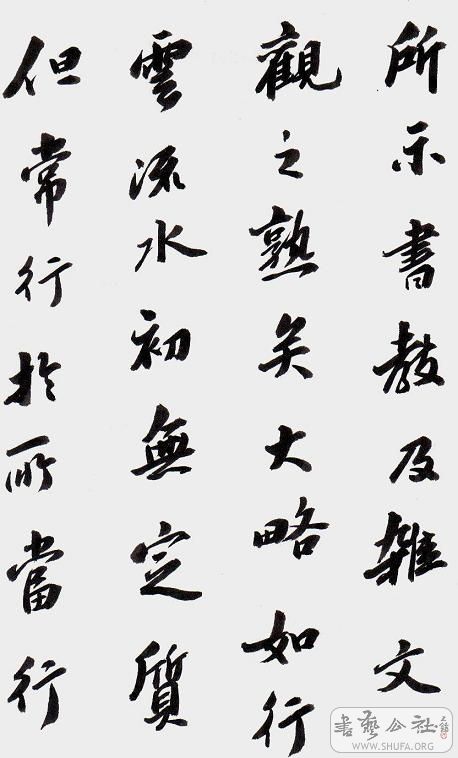 所示書教及雜文
觀之熟矣大略如行
雲流水初無定質
但常行於所當行
書藝公社
WWW.SHUFA.ORG